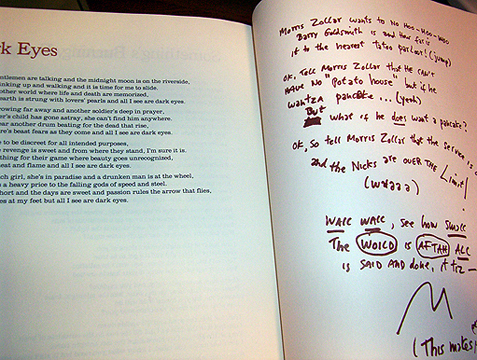 rk Eyes
ntlemen are talking and the midnight moon is on the riverside,
inking up and walking and it is time for me to slide.
other world where life and death are memorized,
earth is strung with lovers' pearls and all I see are dark eyes.
rowing far away and another soldier's deep in prayer,
er's child has gone astray, she can't find him anywhere.
ear another drum beating for the dead that rise,
re's beast fears as they come and all I see are dark eyes.
e to be discreet for all intended purposes,
e revenge is sweet and from where they stand, I'm sure it is.
thing for their game where beauty goes unrecognized,
eat and flame and all I see are dark eyes.
ch girl, she's in paradise and a drunken man is at the wheel,
s a heavy price to the falling gods of speed and steel.
hort and the days are sweet and passion rules the arrow that flies,
es at my feet but all I see are dark eyes.
Morris Zollar wants to no Hoo-Hoo-Woo
Barry Goldsmith is and How far is
it to the nearest tatoo parlor! (yump)
OK, Tell Morris Zollar that He can't
HAVE NO "Potato House" but if he
wantza pancake ... (yeah)
But what if he does want a pancake?
OK, So tell Morris Zollar that the Server is
and the Nicks are over the Limit!
(waaaa)
WAIL WAIL, see how
The WORLD is AFTAH ALL
is SAID AND done,
M
(This makes